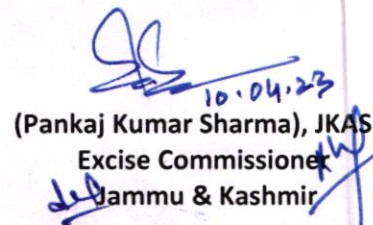 10.04.23
(Pankaj Kumar Sharma), JKAS
Excise Commissioner
Jammu & Kashmir